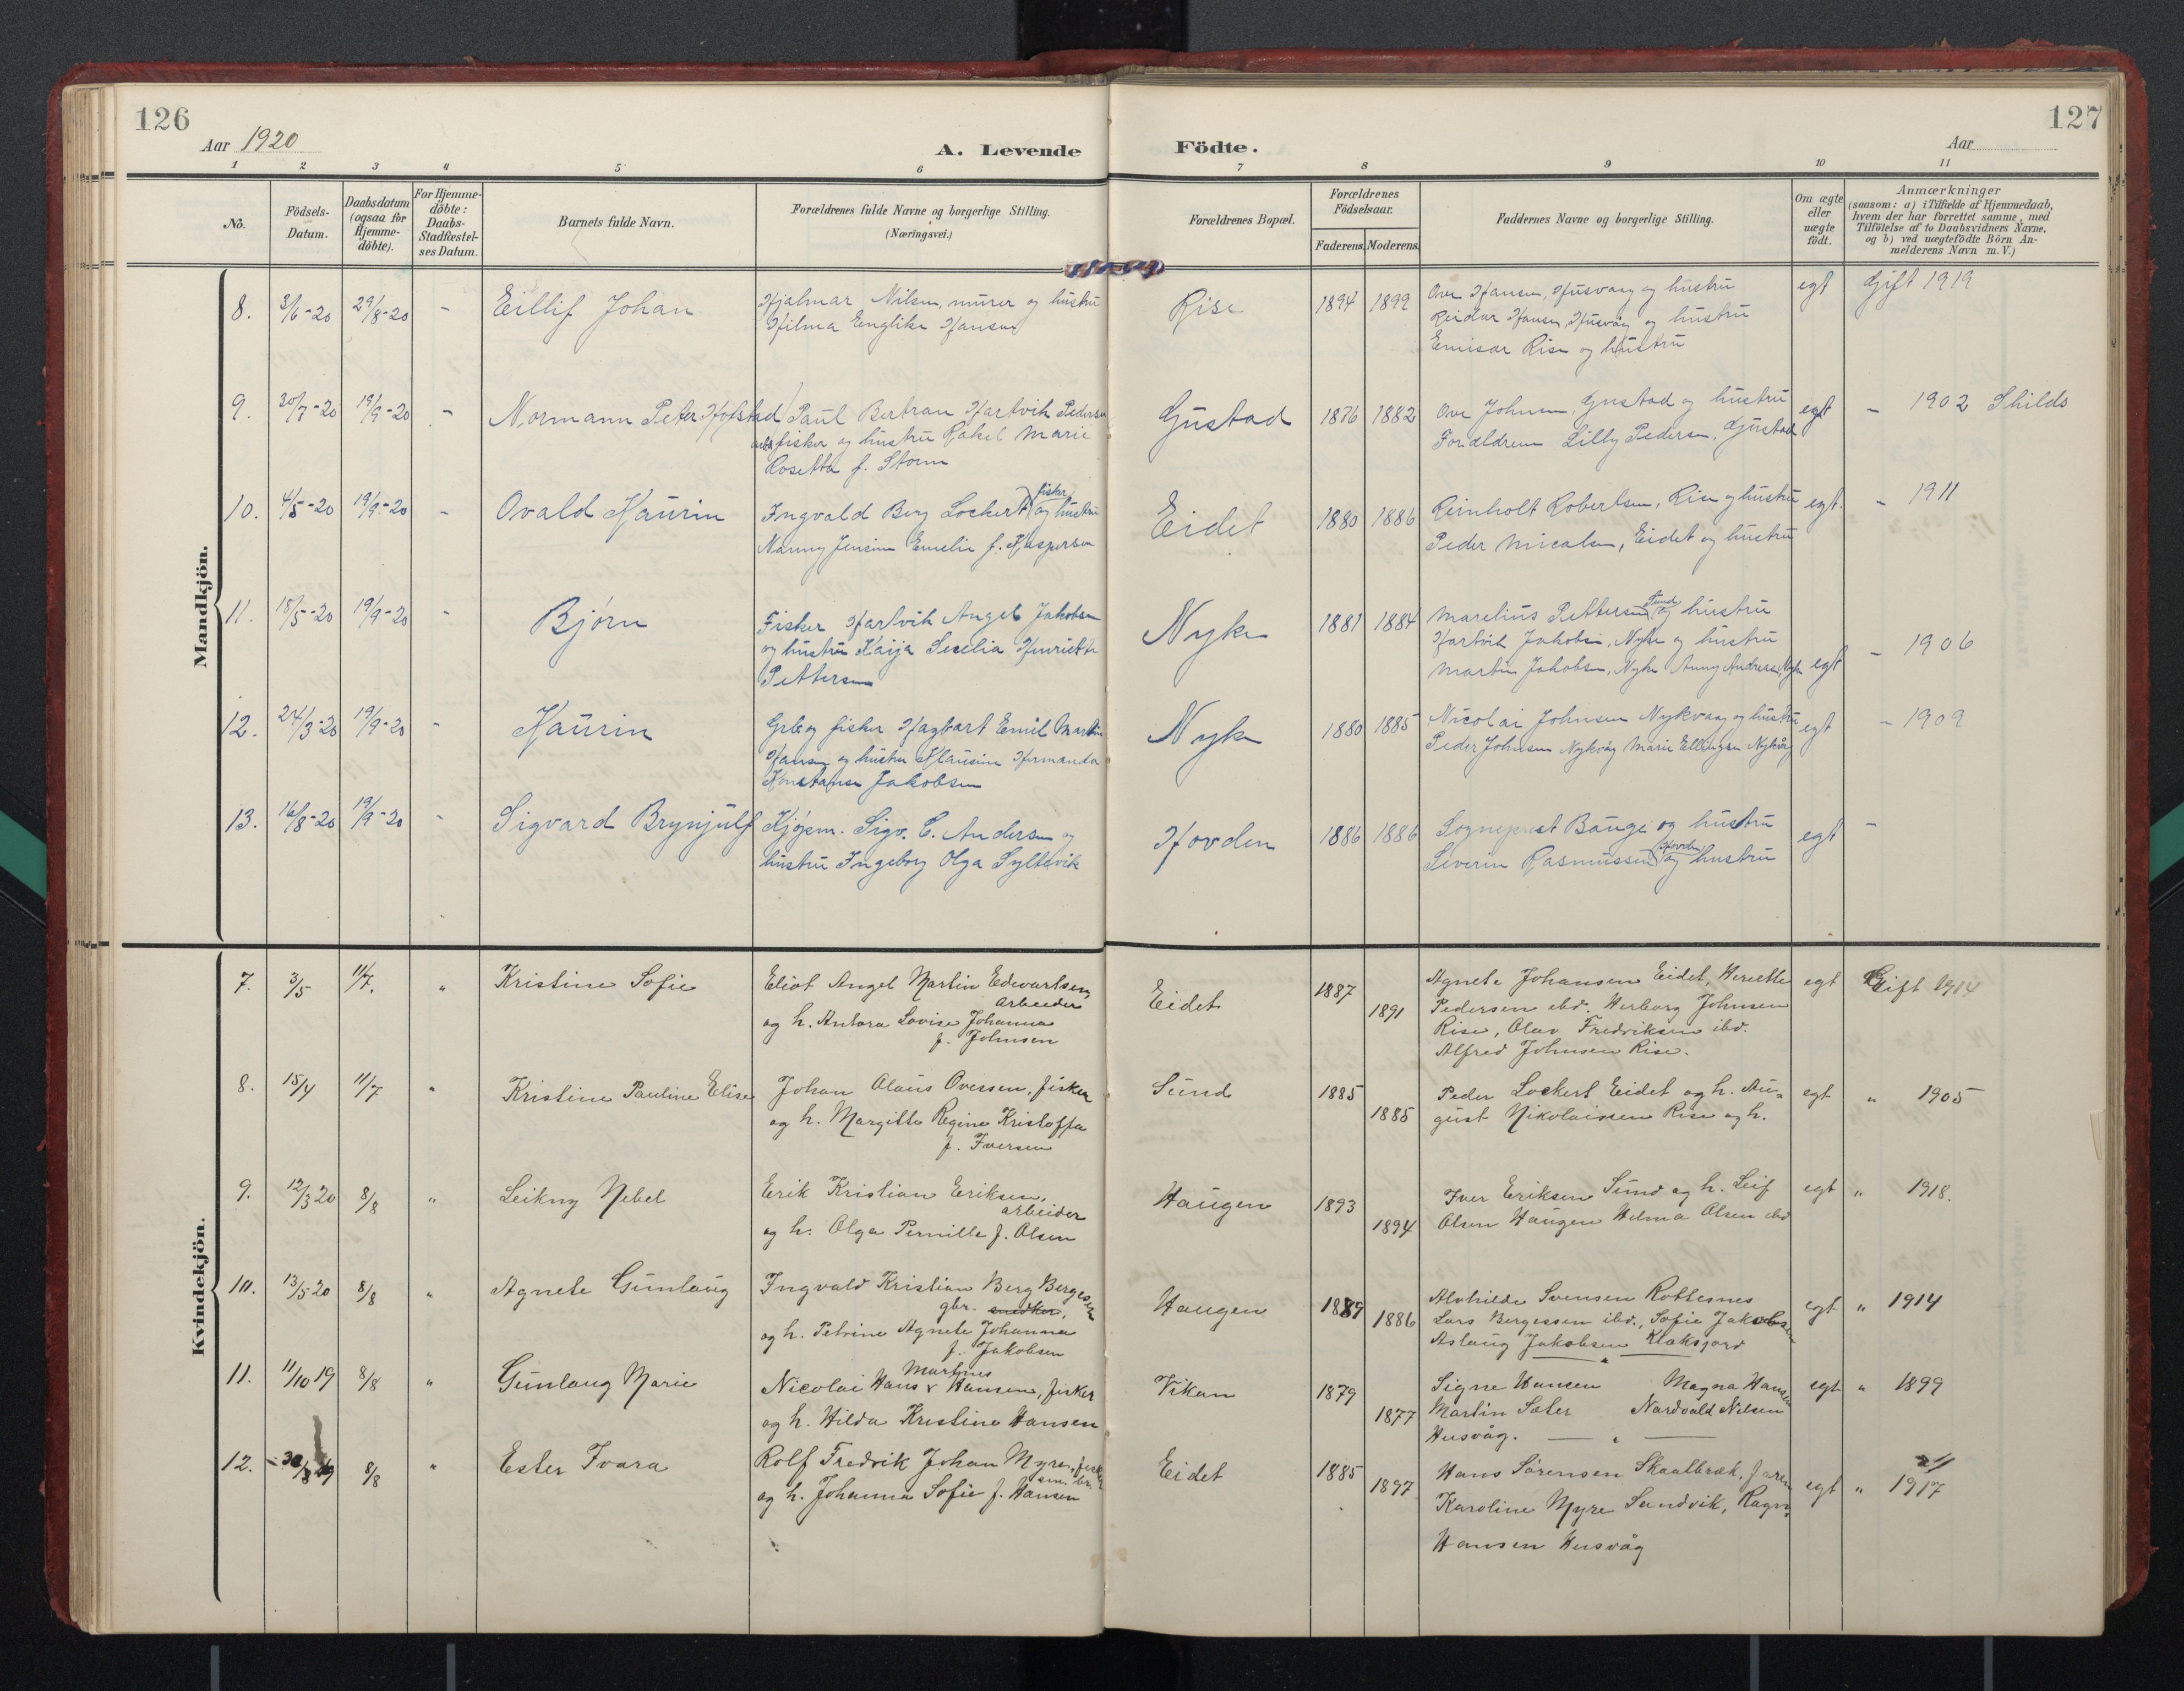 126
Aar 1920
A. Levende
Födte.
Aar
127
1 2 3 4 5 6 7 8 9 10 11
No.
Födsels-
Datum.
Daabsdatum
(ogsaa for
Hjemme-
döbte).
For Hjemme-
döbte:
Daabs-
Stadfæstel-
ses Datum.
Barnets fulde Navn.
Forældrenes fulde Navne og borgerlige Stilling.
(Næringsvei.)
Forældrenes Bopæl.
Forældrenes
Födselsaar.
Faderens. Moderens.
Faddernes Navne og borgerlige Stilling.
Om ægte
eller
uægte
födt.
Anmærkninger
(saasom: a) i Tilfælde af Hjemmedaab,
hvem der har forrettet samme, med
Tilföielse af to Daabsvidners Navne.
og b) ved uægtefödte Börn An-
melderens Navn m.V.)
Mandkjön.
8. 3/6-20 29/8-20 - Eillif Johan
Hjalmar Nilsen, murer og hustru
Hilma Englike Hansen
Rise 1894 1899
Ove Hansen, Husvaag og hustru
Reidar Hansen, Husvåg og hustru
Emisar Rise og hustru
egt Gift 1919
9. 30/7-20 19/9-20 - Normann Peter Hofstad
Paul Bertran Hartvik Pedersen
fisker og hustru Rakel Marie
Rosetta f. Storm
Gustad 1876 1882
Ove Johnsen, Gustad og hustru
Forældrene Lilly Pedersen, Gustad
egt - 1902 Skilds
10. 4/5-20 19/9-20 - Ovald Kaurin
Ingvald Berg Lockert fisker og hustru
Nanny Jensine Emelie f. Kaspersen
Eidet 1880 1886
Reinholt Robertsen, Rise og hustru
Peder Micalsen, Eidet og hustru
egt. - 1911
11. 18/5-20 19/9-20 - Bjørn
Fisker Hartvik Angel Jakobsen
og hustru Kaija Sesilia Henriette
Pettersen
Nyke 1881 1884
Marelius Pettersen Sund og hustru
Hartvik Jakobsen, Nyke og hustru
Martin Jakobsen, Nyke Anny Andersen, Nyke
egt - 1906
12. 24/3-20 19/9-20 - Kaurin
Grbr og fisker Hagbart Emil Martin
Hansen og hustru Klausine Hermanda
Konstanse Jakobsen
Nyke 1880 1885
Nicolai Johnsen Nykvaag og hustru
Peder Johnsen Nykvåg Marie Ellingsen Nykvåg
egt - 1909
13. 16/8-20 19/9-20 - Sigvard Brynjulf
Kjøpm. Sigv. C. Andersen og
hustru Ingeborg Olga Syltevik
Hovden 1886 1886
Sogneprest Bauge og hustru
Severin Rasmussen Hovden og hustru
egt -
Kvindekjön.
7. 3/5 11/7. " Kristine Sofie
Eliot Angel Martin Edvartsen,
Arbeider
og h. Antora Lovise Johanna
f. Johnsen
Eidet 1887 1891
Agnete Johansen Eidet, Merethe
Pedersen ibd. Herborg Johnsen
Rise, Olav Fredriksen ibd.
Alfred Johnsen Rise.
egt Gift 1914
8. 15/4 11/7 " Kristine Pauline Elise
Johan Olaus Ovessen, fisker
og h. Margitte Regine Kristoffa
f. Iversen
Sund 1885 1885
Peder Lockert Eidet og h. Au-
gust Nikolaissen Rise og h.
egt " 1905
9. 12/3 20 8/8 " Leikny Nebel
Erik Kristian Eriksen,
arbeider
og h. Olga Pernille f. Olsen
Haugen 1893 1894
Iver Eriksen Sund og h. Leif
Olsen Haugen Helma Olsen ibd
egt " 1918.
10. 13/5 20 8/8 " Agnete Gunlaug
Ingvald Kristian Berg Bergesen
gbr. snedker,
og h. Petrine Agnete Johanna
f. Jakobsen
Haugen 1889 1886
Alvhilde Svensen Rottesnes
Lars Bergessen ibd., Sofie Jakobsen
Aslaug Jakobsen Klaksjord
egt " 1914
11. 11/10 19 8/8 " Gunlaug Marie
Martines
Nicolai Hans Hansen, fisker
og h. Hilda Kristine Hansen
Vikan 1879 1877
Signe Hansen Magna Hansen
Martin Sæter Nordvald Nilsen
Husvåg. — " —
egt " 1899
12. 8/8 " Ester Ivara
Rolf Fredrik Johan Myre, fisker
og h. Johanna Sofie f. Hansen
Eidet 1885 1897
Hans Sörensen Skaalbræk,
Karoline Myre Sandvik, Ragn.
Hansen Husvåg
egt " 1917